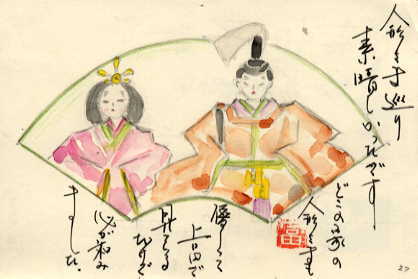 人形さま巡り
素晴しかったです
どこの家の
人形さまも
優しくて
上品で
見てる
だけで
心が和み
ました。
富